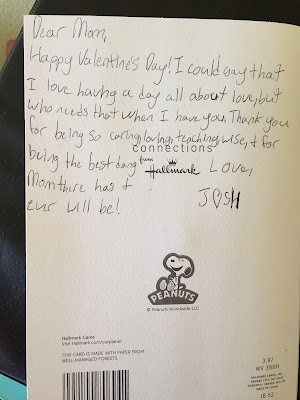 Dear Mom,
Happy Valentine's Day! I could say that
I love having a day all about love, but
who needs that when I have you. Thank you
for being so caring, loving, teaching, wise, + for
connections
being the best dang
from Hallmark
Love,
Mom there has +
JOSH
ever will be!
PEANUTS
© Peanuts Worldwide LLC
Hallmark Cares
Visit Hallmark.com/ourplanet
THIS CARD IS MADE WITH PAPER FROM
WELL-MANAGED FORESTS.
3.97
HALLMARK CARDS, INC.